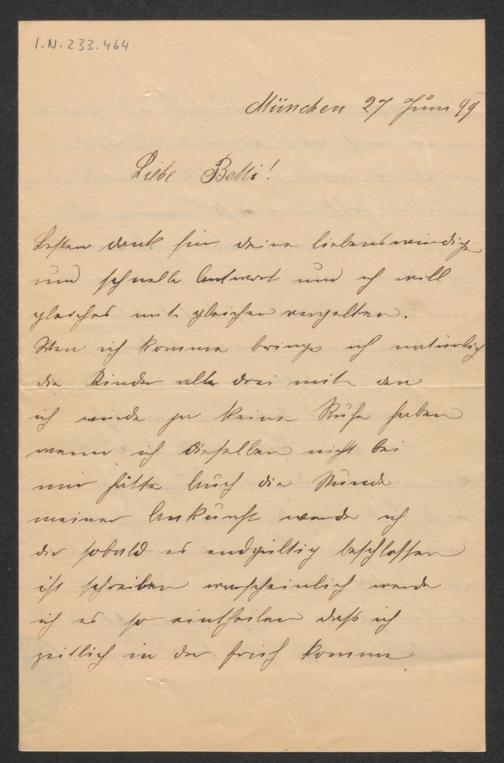 I.N. 233.464
München 27 Juni 99
Liebe Betti!
Besten dank für deine liebenswürdige
und schnelle Antwort und ich will
gleiches mit gleichen vergelten.
Wen ich komme bringe ich natürlich
die Kinder alle drei mit den
ich würde ja keine Ruhe haben
wenn ich dieselben nicht bei
mir hätte Auch die Stunde
meiner Ankunft werde ich
dir sobald es endgültig beschlossen
ist schreiben warscheinlich werde
ich es so eintheilen daß ich
zeitlich in der früh komme